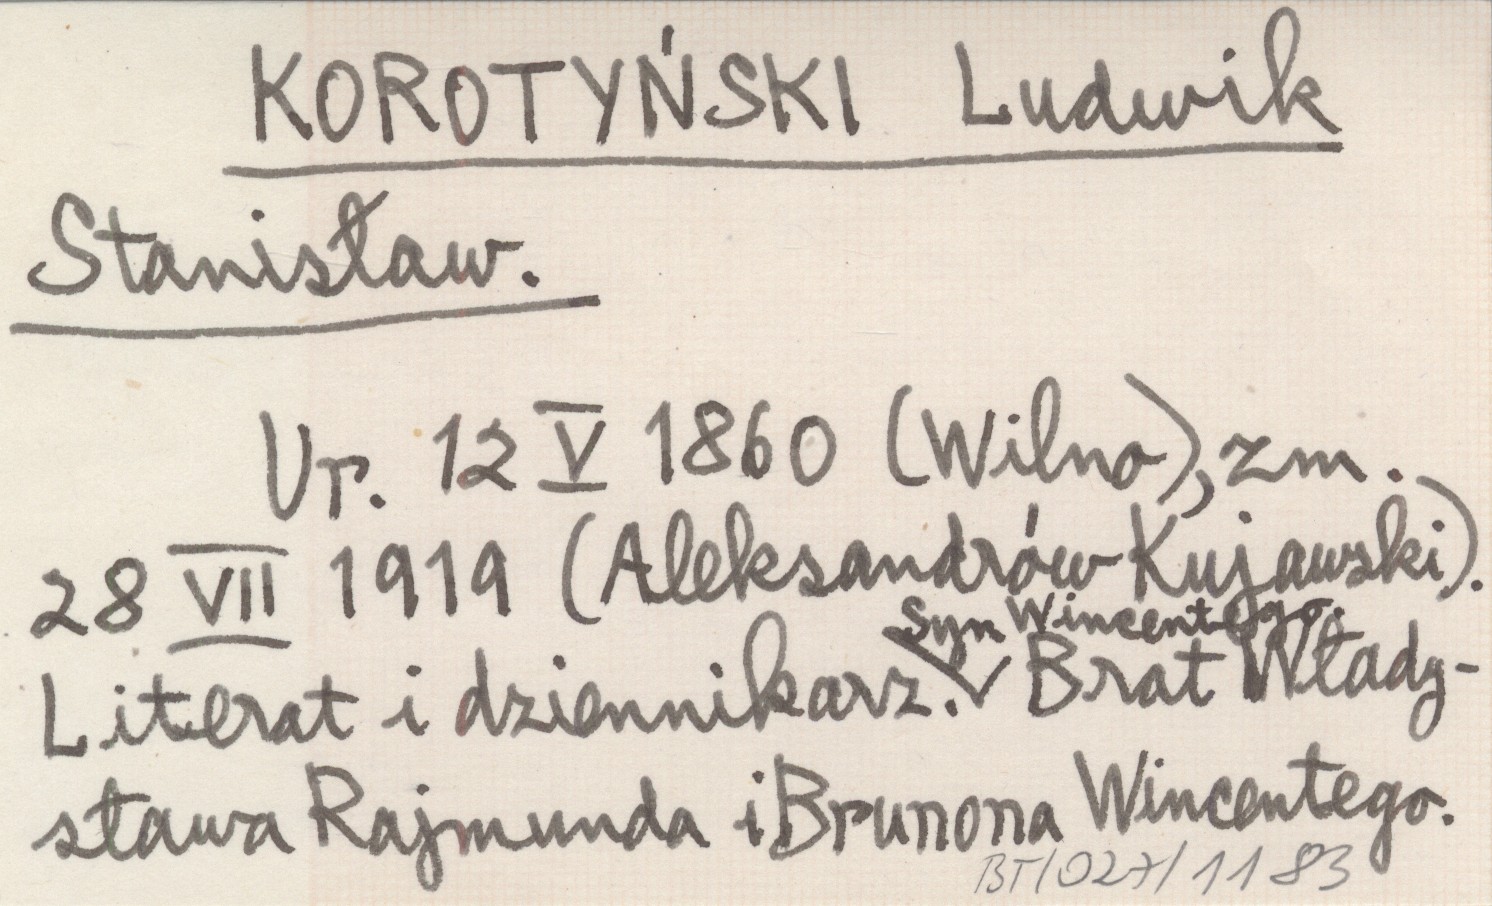 KOROTYŃSKI Ludwik
Stanisław.
Ur. 12 V 1860 (Wilno), zm.
28 VII 1919 (Aleksandrów Kujawski).
Syn Wincentego.
Literat i dziennikarz. Brat Włady-
sława Rajmunda i Brunona Wincentego.
BT/027/1183